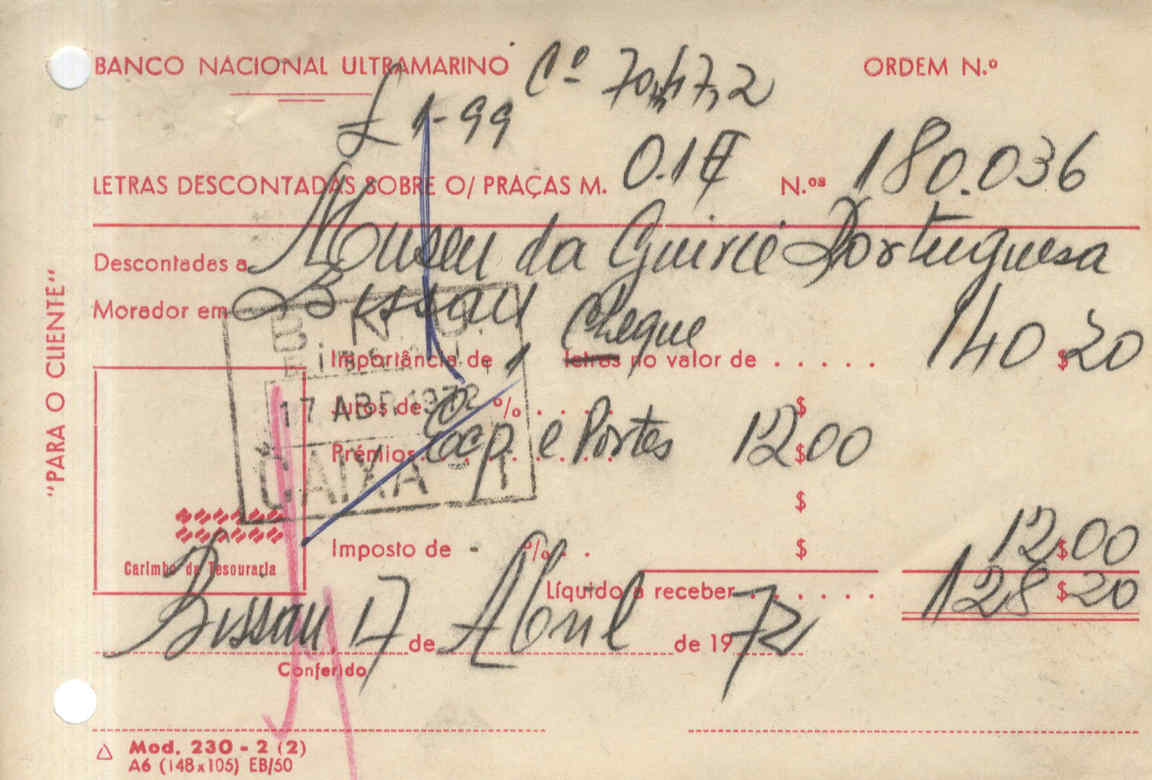 BANCO NACIONAL ULTRAMARINO Cº 70,47,2 ORDEM N.º
£ 1-99
LETRAS DESCONTADAS SOBRE O/ PRAÇAS M. 0.1 N.ºˢ 180.036
Descontadas a Museu da Guiné Portuguesa
Morador em Bissau
Cheque
Importância de 1 letras no valor de . . . . . . 140$20
Juros de % . . . . $
Prémios. Cap e Portes 12$00
$
Imposto de - % . . $ 12$00
Líquido a receber . . . . . . 128$20
B. N. U.
BISSAU
17 ABR. 1972
CAIXA - 1
Carimbo da Tesouraria
Bissau 17 de Abril de 1972
Conferido
"PARA O CLIENTE"
Mod. 230 - 2 (2)
A6 (148x105) EB/50